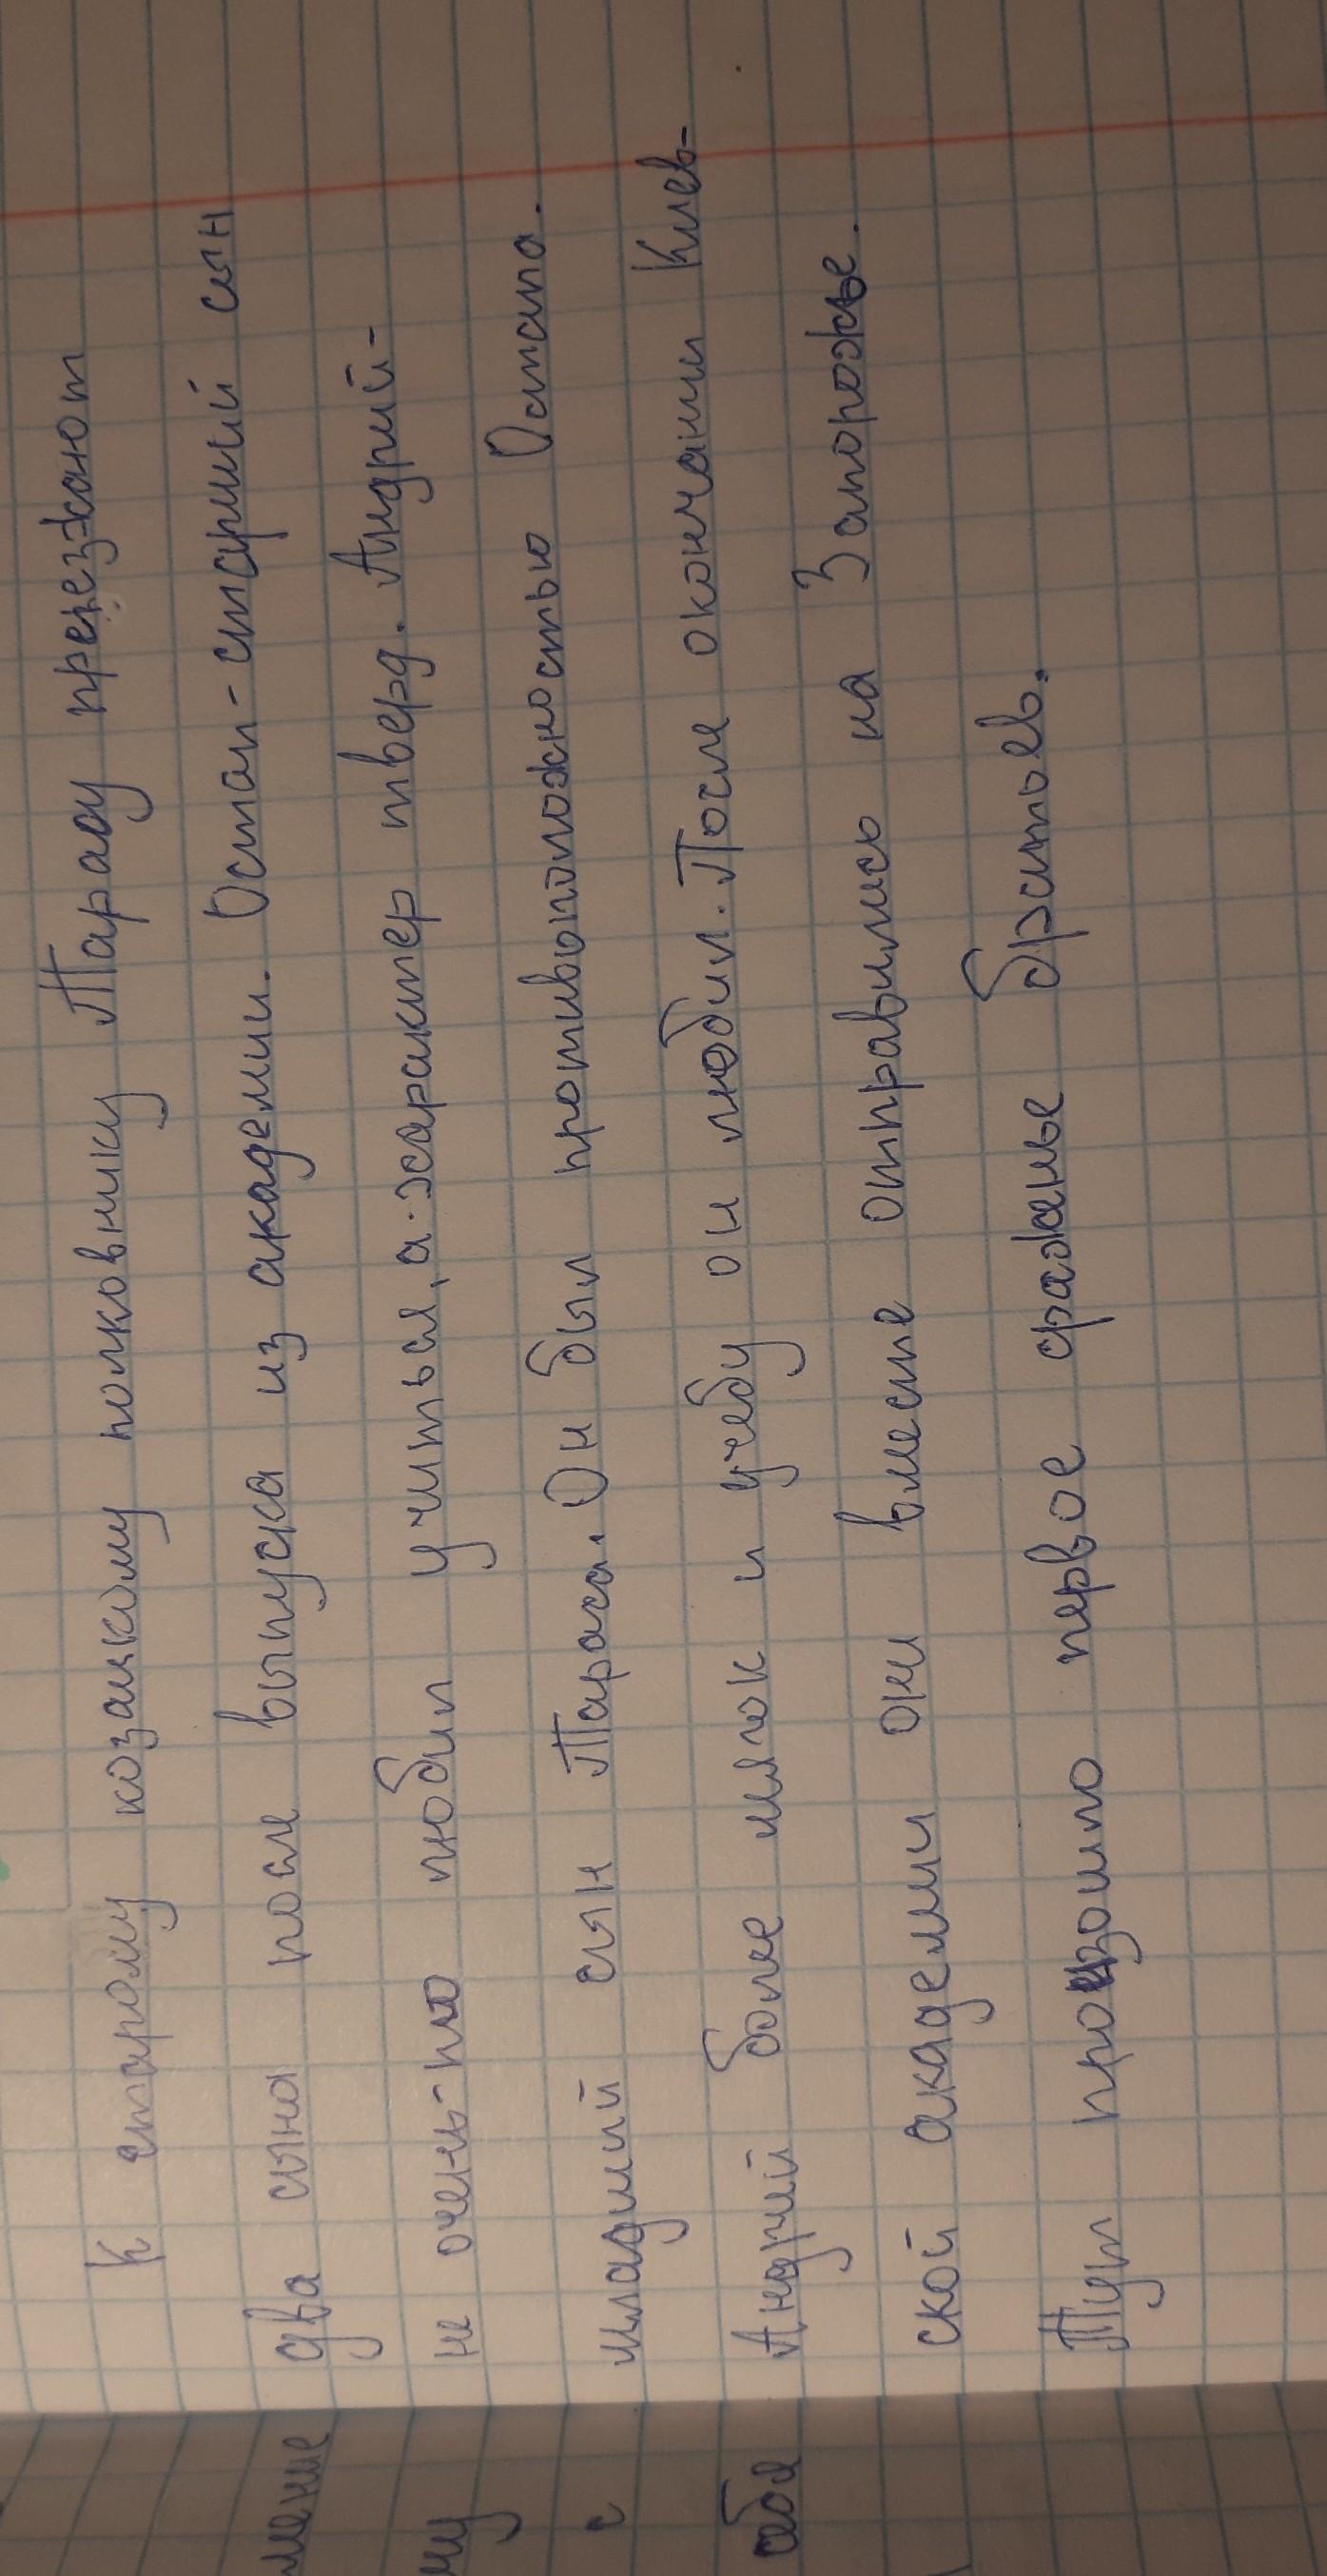 К старому козацкому полковнику Тарасу преезжают
два сына после выпуска из академии. Остап-старший сын
не очень-то любил учиться, а характер тверд. Андрий-
младший сын Тараса. Он был противоположностью Остапа.
Андрий более мягок и учебу он любил. После окончании Киев-
ской академии они вместе отправились на Запорожье.
Тут произошло первое сраженье братьев.
мление
му
с
абоя